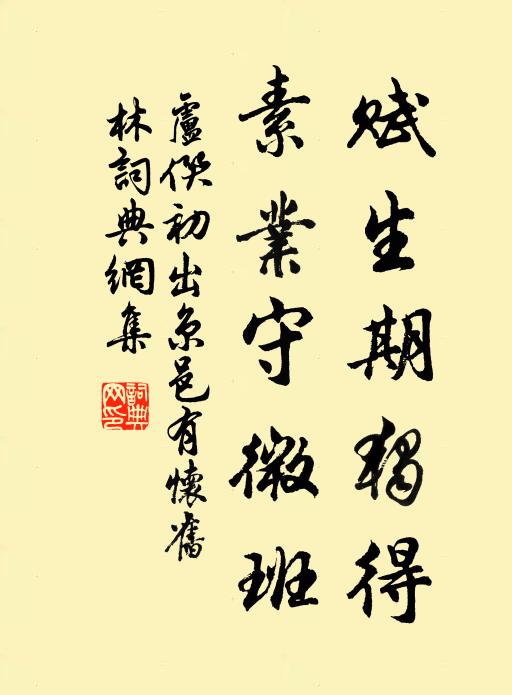 賦生期獨得
素業守微班
盧僎初出京邑有懷舊
林詞典網集
詞典網印